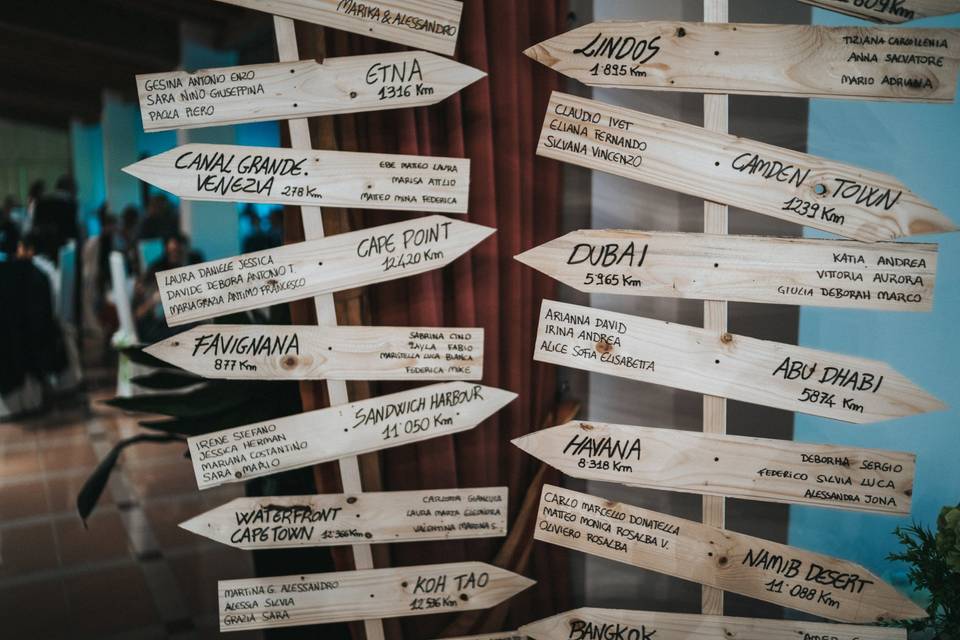 MARIKA & ALESSANDRO
ETNA
1316 Km
GESINA ANTONIO ENZO
SARA NINO GIUSEPPINA
PAOLA PIERO
CANAL GRANDE.
VENEZIA 278 Km
EBE MATTEO LAURA
MARISA ATTILIO
MATTEO MONA FEDERICA
LAURA DANIELE JESSICA
DAVIDE DEBORA ANTONIO T.
MARIA GRAZIA ANTIMO FRANCESCO
CAPE POINT
12420 Km
FAVIGNANA
877 Km
SABRINA CINO
LAYLA FABIO
MARISTELLA LUCA BIANCA
FEDERICA MIKE
IRENE STEFANO
JESSICA HERMAN
MARIANA COSTANTINO
SARA MARIO
SANDWICH HARBOUR
11'050 Km
WATERFRONT
CAPE TOWN 12'366 Km
CARLOTTA GIANLUCA
LAURA MARTA ELEONORA
VALENTINA MARINA S.
MARTINA G. ALESSANDRO
ALESSIA SILVIA
GRAZIA SARA
KOH TAO
12'596 Km
LINDOS
1'895 Km
TIZIANA
ANNA SALVATORE
MARIO ADRIANA
CLAUDIO IVET
ELIANA FERNANDO
SILVANA VINCENZO
CAMDEN TOWN
1239 Km
DUBAI
5'965 Km
KATIA ANDREA
VITTORIA AURORA
GIULIA DEBORAH MARCO
ARIANNA DAVID
IRINA ANDREA
ALICE SOFIA ELISABETTA
ABU DHABI
5874 Km
HAVANA
8'318 Km
DEBORHA SERGIO
FEDERICO SILVIA LUCA
ALESSANDRA JONA
CARLO MARCELLO DONATELLA
MATTEO MONICA ROSALBA V.
OLIVIERO ROSALBA
NAMIB DESERT
11'088 Km
BANGKOK